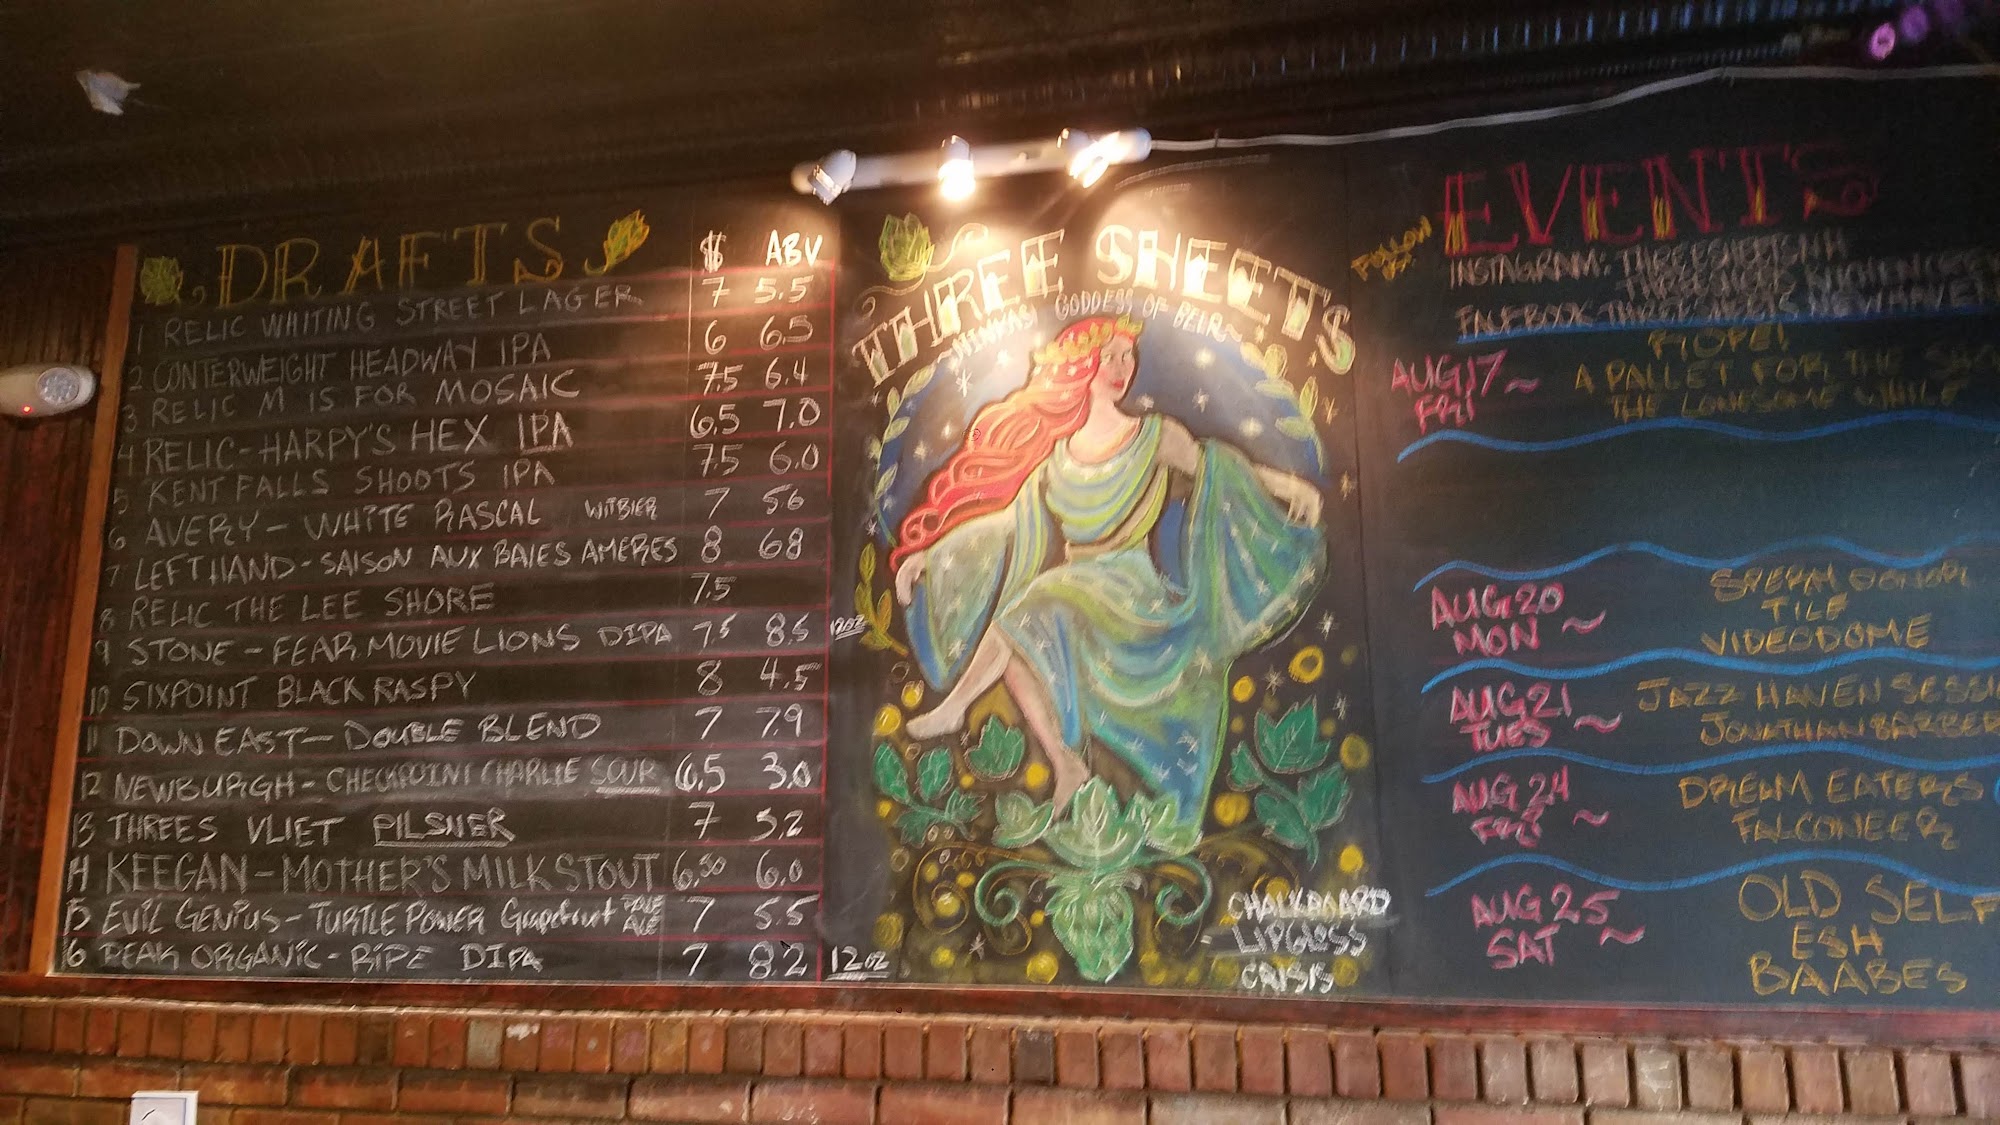 DRAFTS $ ABV
1 RELIC WHITING STREET LAGER 7 5.5
2 CONTERWEIGHT HEADWAY IPA 6 6.5
3 RELIC M IS FOR MOSAIC 7.5 6.4
4 RELIC-HARPY'S HEX IPA 6.5 7.0
5 KENT FALLS SHOOTS IPA 7.5 6.0
6 AVERY- WHITE RASCAL WITBIER 7 5.6
7 LEFTHAND-SAISON AUX BAIES AMERES 8 68
8 RELIC THE LEE SHORE 7.5
9 STONE-FEAR MOVIE LIONS DIPA 7.5 8.5 12oz
10 SIXPOINT BLACK RASPY 8 4.5
11 DOWN EAST- DOUBLE BLEND 7 7.9
12 NEWBURGH-CHECKPOINT CHARLIE SOUR 6.5 3.0
13 THREES VLIET PILSNER 7 5.2
14 KEEGAN-MOTHER'S MILK STOUT 6.50 6.0
15 EVIL GENIUS-TURTLE POWER Grapefruit PALE ALE 7 5.5
16 PEAK ORGANIC-RIPE DIPA 7 8.2 12oz
THREE SHEETS
~NINKASI GODDESS OF BEER~
CHALKBOARD
LIPGLOSS
CRISIS
EVENTS
FOLLOW
INSTAGRAM: THREESHEETSNH
FACEBOOK-THREESHEETS NEWHAVEN
AUG 17~
FRI
A PALLET FOR THE
THE LONESOME WHILE
AUG 20
MON ~
SPERM DONOR
TILE
VIDEODOME
AUG 21
TUES ~
JAZZ HAVEN
JONATHAN BARBER
AUG 24
FRI ~
DREAM EATERS
FALCONEER
AUG 25
SAT ~
OLD SELF
ESH
BAABES